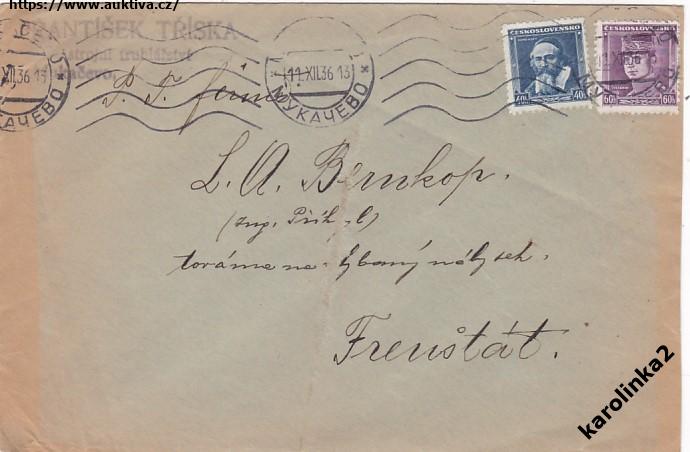 https://www.auktiva.cz/
FRANTIŠEK TŘÍSKA
strojní truhlářství
11.XII.36 13
МУКАЧЕВО
ČESKOSLOVENSKO
40h 40h
ČESKOSLOVENSKO
60h 60h
P. T. firma
L. A. Bernkop.
(Ing. Příh
továrna na ohýbaný nábytek.
Frenštát.
karolinka2